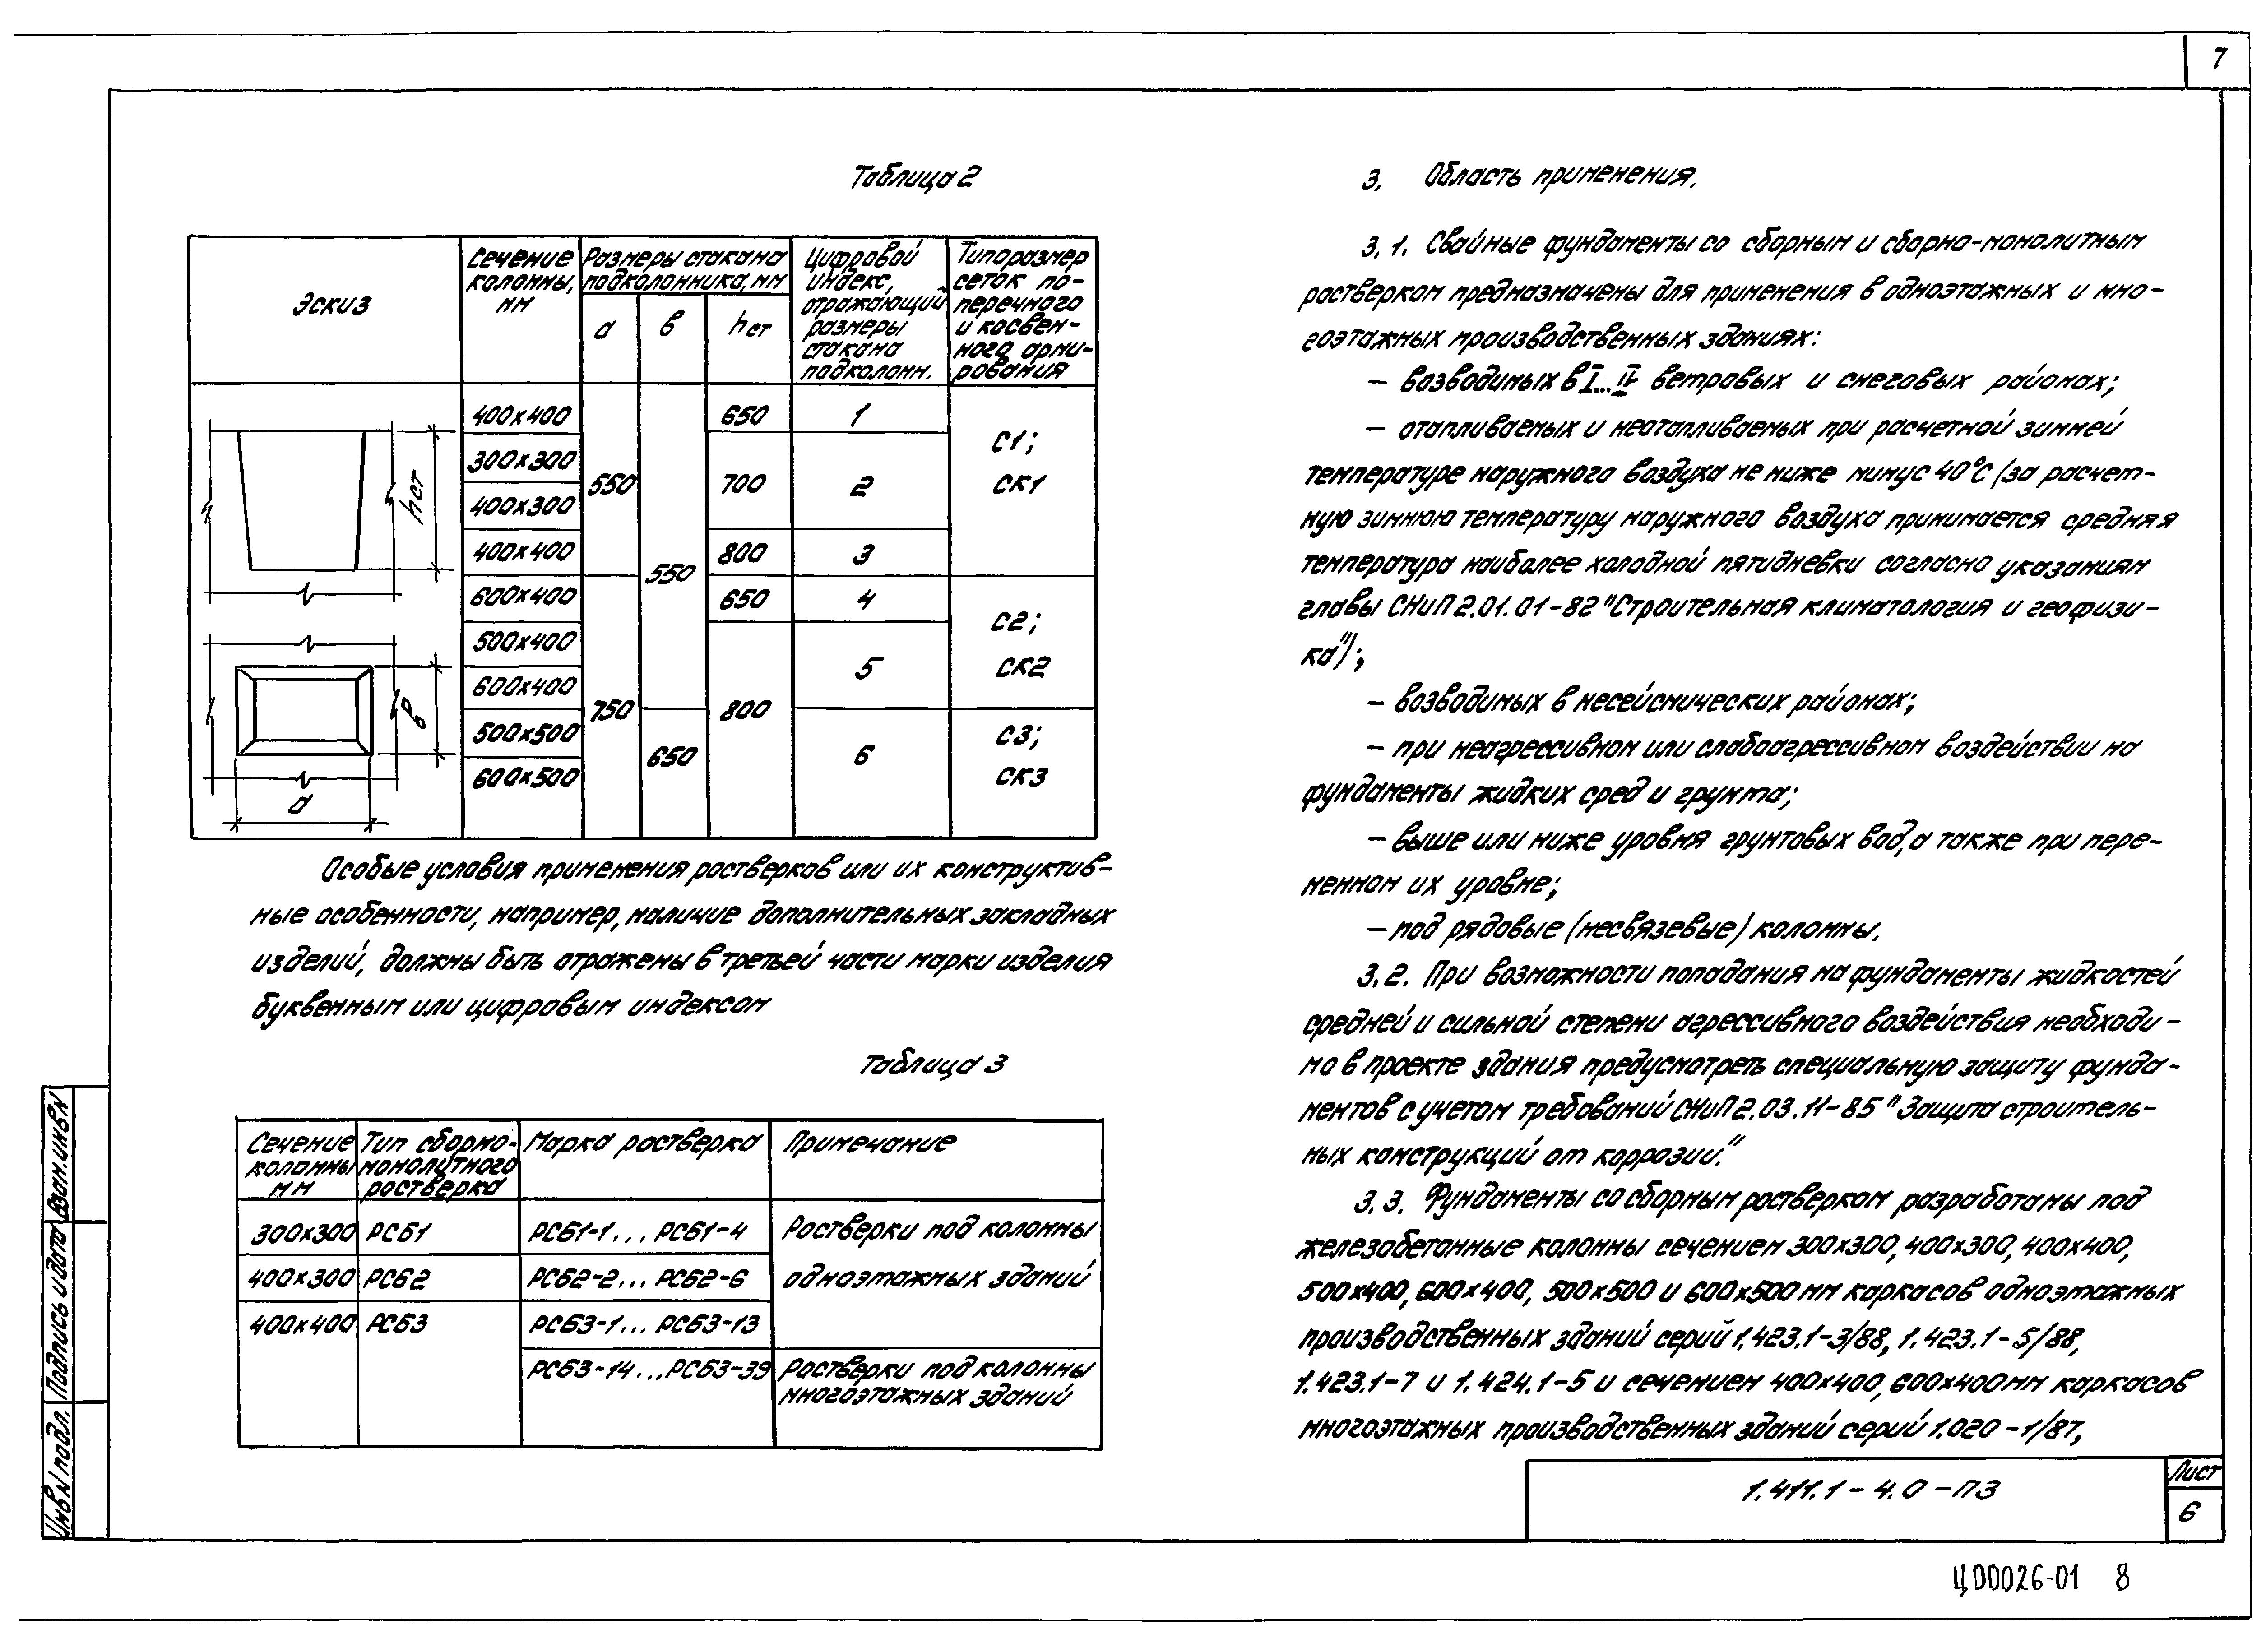 7
Таблица 2
Эскиз
Сечение колонны, мм
Размеры стакана подколонника, мм
а
в
hст
Цифровой индекс, отражающий размеры стакана подколонн.
Типоразмер сеток поперечного и косвенного армирования
hст
в
а
400х400
300х300
400х300
400х400
600х400
500х400
600х400
500х500
600х500
550
750
550
650
650
700
800
650
800
1
2
3
4
5
6
С1;
СК1
С2;
СК2
С3;
СК3
Особые условия применения ростверков или их конструктив-
ные особенности, например, наличие дополнительных закладных
изделий, должны быть отражены в третьей части марки изделия
буквенным или цифровым индексом
Таблица 3
Сечение колонны мм
Тип сборно-монолитного ростверка
Марка ростверка
Примечание
300х300 РСБ1 РСБ1-1... РСБ1-4 Ростверки под колонны
400х300 РСБ2 РСБ2-2... РСБ2-6 одноэтажных зданий
400х400 РСБ3 РСБ3-1... РСБ3-13
РСБ3-14...РСБ3-39 Ростверки под колонны
многоэтажных зданий
3. Область применения.
3.1. Свайные фундаменты со сборным и сборно-монолитным
ростверком предназначены для применения в одноэтажных и мно-
гоэтажных производственных зданиях:
– возводимых в I...IV ветровых и снеговых районах;
– отапливаемых и неотапливаемых при расчетной зимней
температуре наружного воздуха не ниже минус 40°С /за расчет-
ную зимнюю температуру наружного воздуха принимается средняя
температура наиболее холодной пятидневки согласно указаниям
главы СНиП 2.01.01-82 "Строительная климатология и геофизи-
ка"/;
– возводимых в несейсмических районах;
– при неагрессивном или слабоагрессивном воздействии на
фундаменты жидких сред и грунта;
– выше или ниже уровня грунтовых вод, а также при пере-
менном их уровне;
– под рядовые (несвязевые) колонны.
3.2. При возможности попадания на фундаменты жидкостей
средней и сильной степени агрессивного воздействия необходи-
мо в проекте здания предусмотреть специальную защиту фунда-
ментов с учетом требований СНиП 2.03.11-85 "Защита строитель-
ных конструкций от коррозии."
3.3. Фундаменты со сборным ростверком разработаны под
железобетонные колонны сечением 300х300, 400х300, 400х400,
500х400, 600х400, 500х500 и 600х500 мм каркасов одноэтажных
производственных зданий серий 1.423.1-3/88, 1.423.1-5/88,
1.423.1-7 и 1.424.1-5 и сечением 400х400, 600х400 мм каркасов
многоэтажных производственных зданий серий 1.020-1/87,
Инв.N подл. Подпись и дата Взам.инв.N
1.411.1-4.0-ПЗ
Лист
6
ЦД0026-01 8